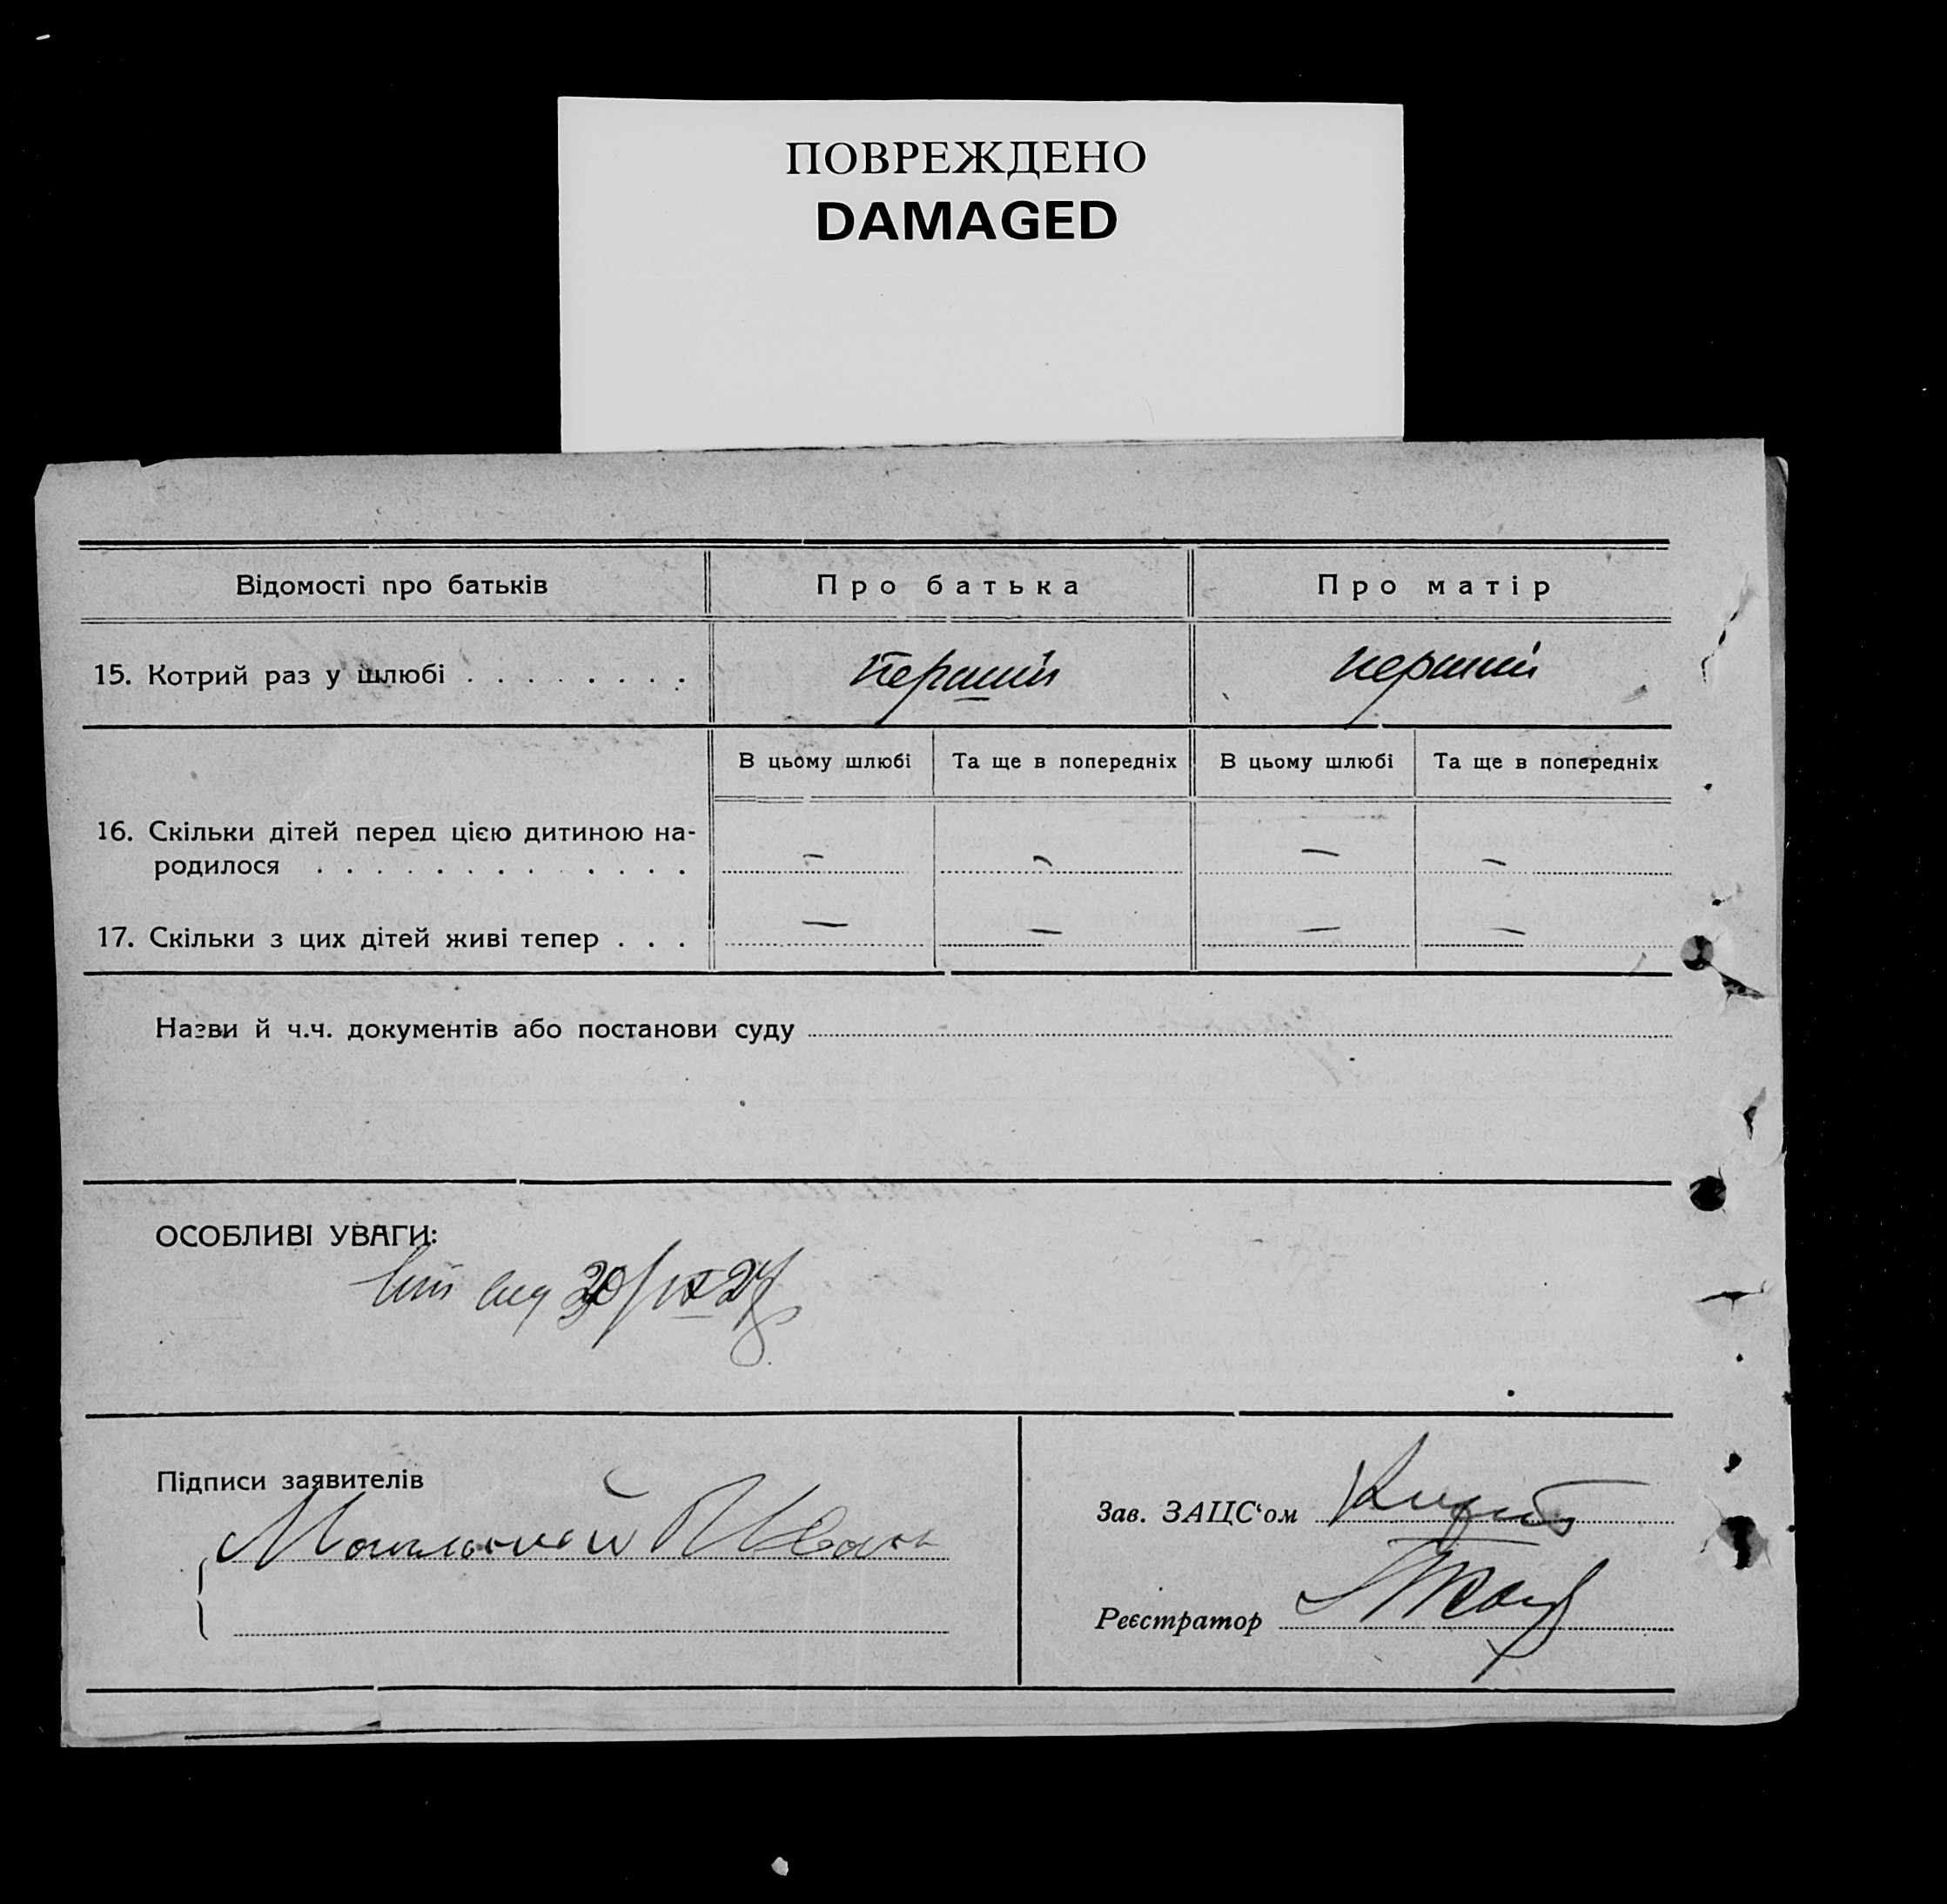 ПОВРЕЖДЕНО
DAMAGED
Відомості про батьків
Про батька
Про матір
15. Котрий раз у шлюбі . . . . . . . .
перший
перший
В цьому шлюбі
Та ще в попередніх
В цьому шлюбі
Та ще в попередніх
16. Скільки дітей перед цією дитиною на-
родилося . . . . . . . . . . . . .
— — — —
17. Скільки з цих дітей живі тепер . . .
— — — —
Назви й ч.ч. документів або постанови суду
ОСОБЛИВІ УВАГИ:
Підписи заявителів
Зав. ЗАЦС'ом
Реєстратор